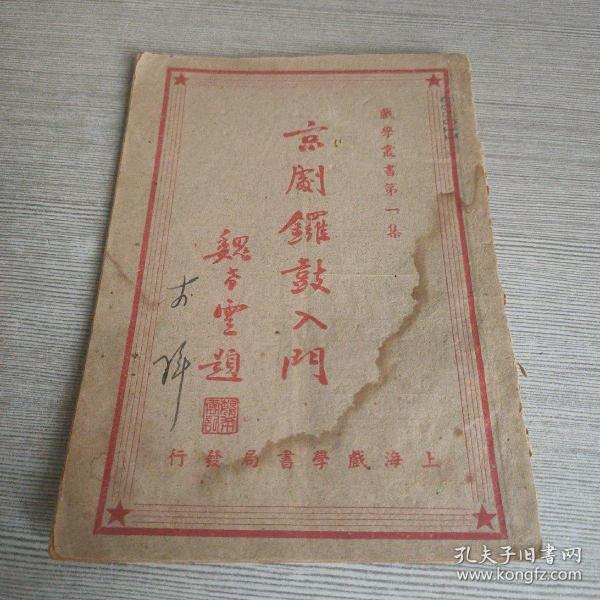 戲學叢書第一集
京劇鑼鼓入門
魏希雲題
上海戲學書局發行
孔夫子旧书网
www.kongfz.com